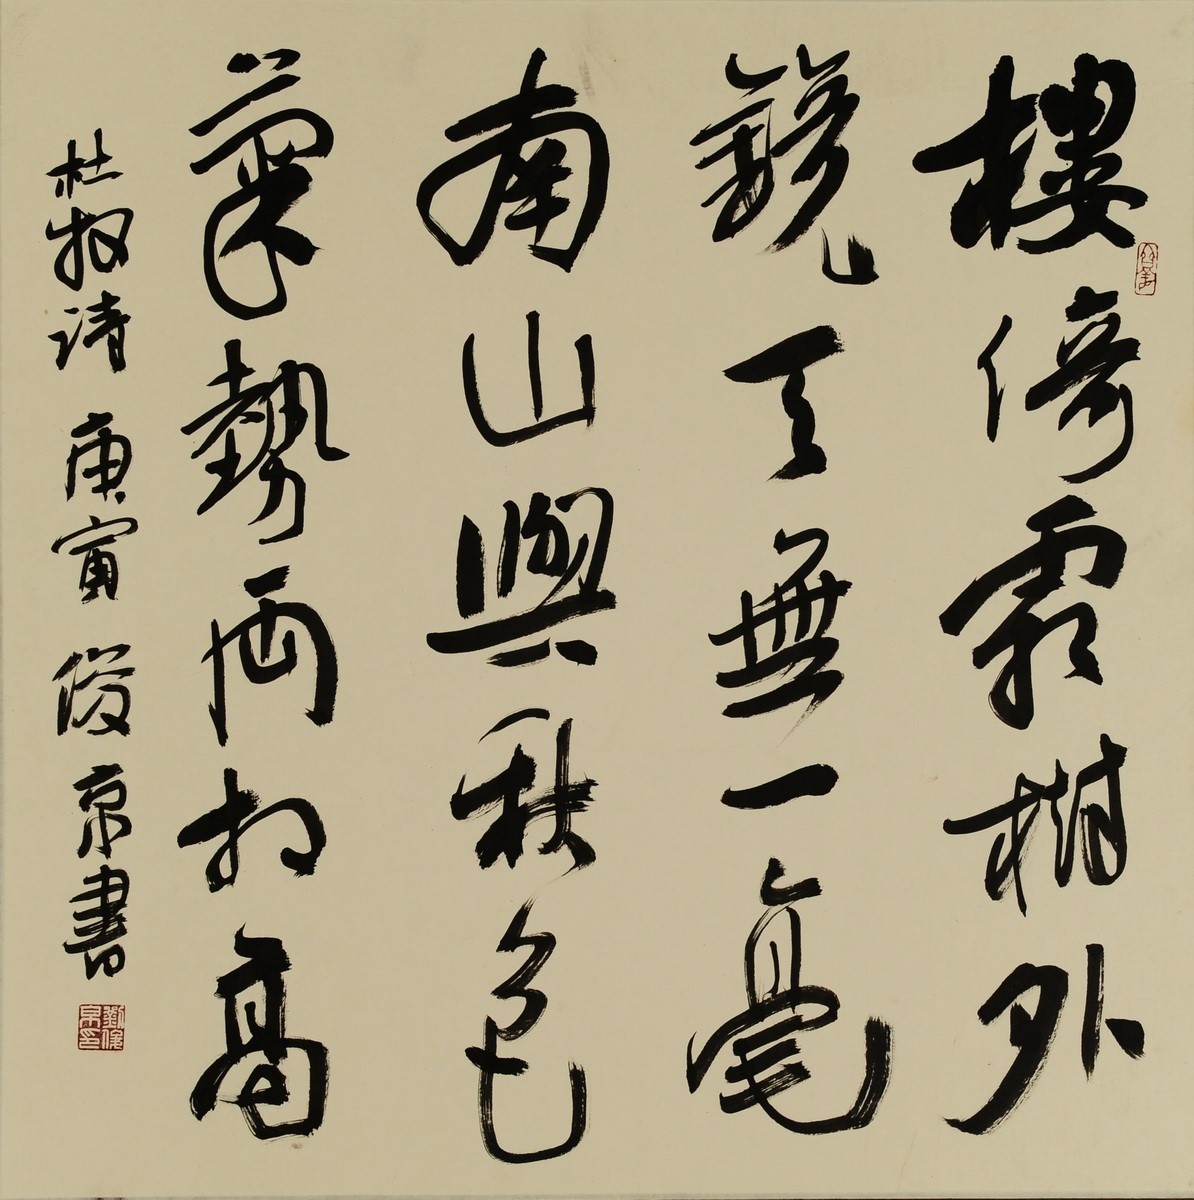 樓倚霜樹外
鏡天無一毫
南山與秋色
氣勢兩相高
杜牧詩 庚寅 俊京書
劉俊京印